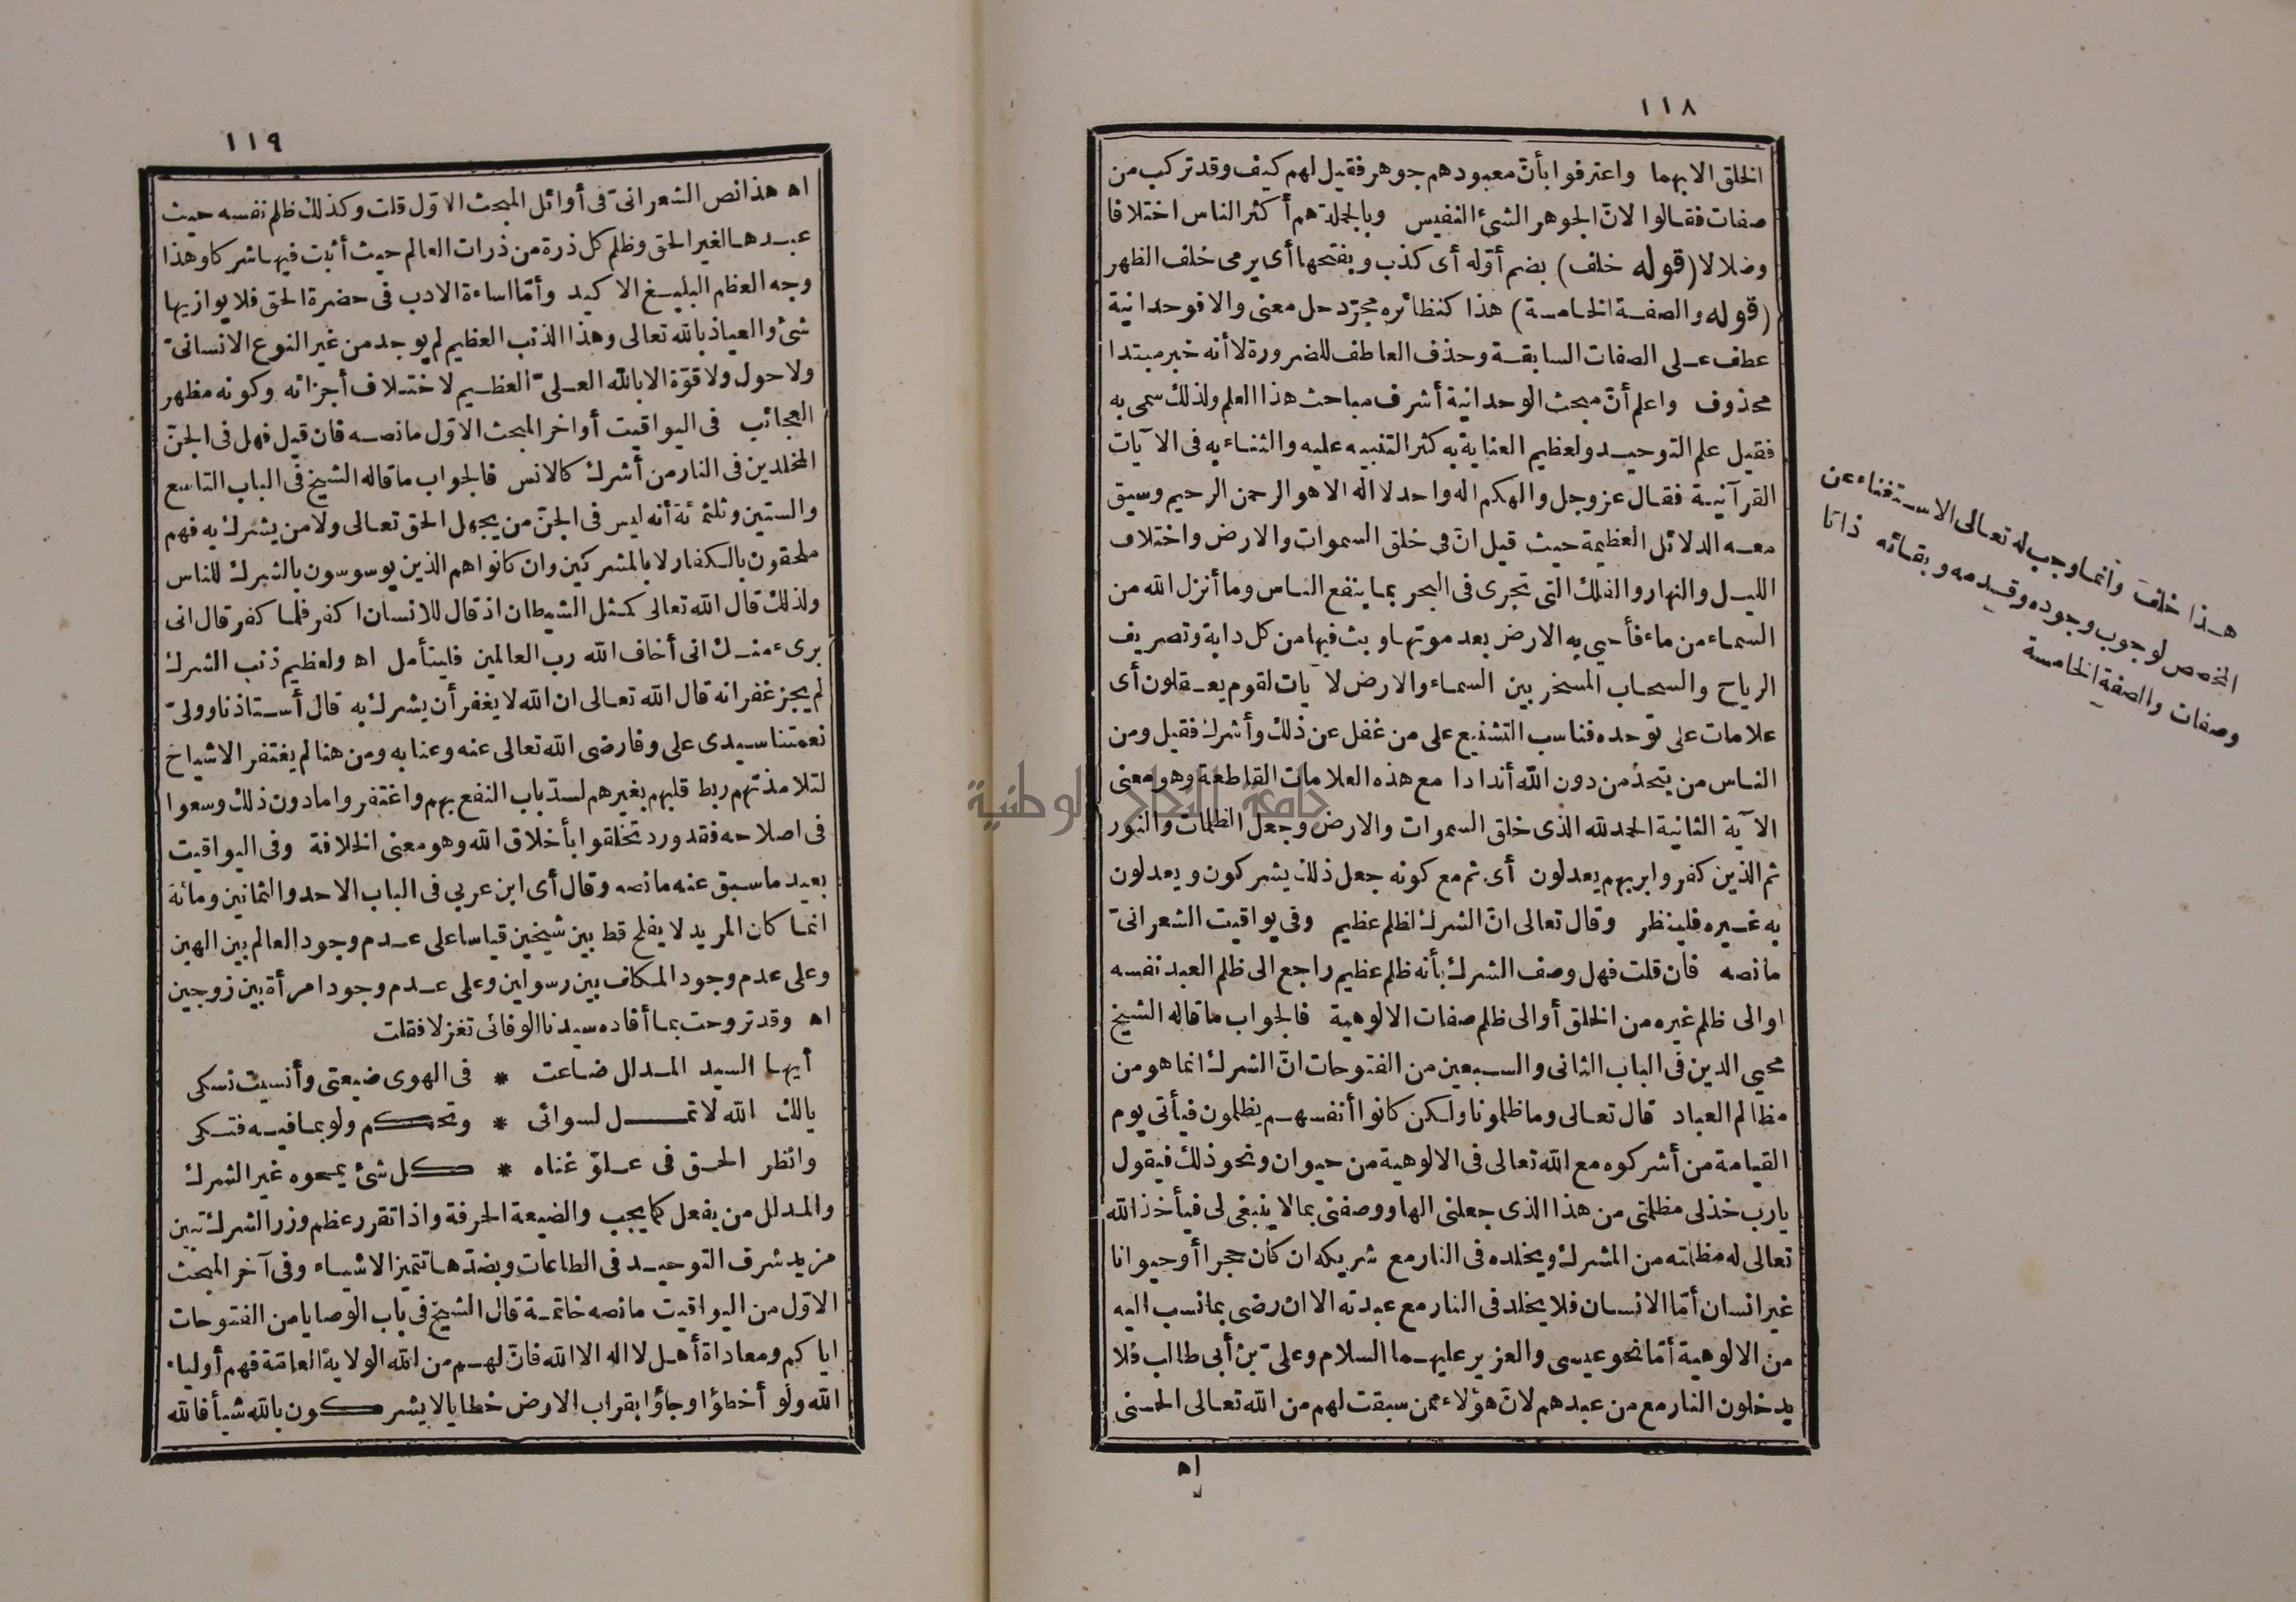 ١١٨
الخلق الا بهما واعترفوا بأنّ معبودهم جوهر فقيل لهم كيف وقد تركب من
صفات فقالوا لانّ الجوهر الشئ النفيس وبالجملة هم أكثر الناس اختلافا
وضلالا (قوله خلف) بضم أوّله أى كذب وبفتحها أى يرمى خلف الظهر
(قوله والصفة الخامسة) هذا كنظائره مجرّد حل معنى والا فوحدانية
عطف على الصفات السابقة وحذف العاطف للضرورة لا أنه خبر مبتدا
محذوف واعلم أنّ مبحث الوحدانية أشرف مباحث هذا العلم ولذلك سمى به
فقيل علم التوحيد ولعظيم العناية به كثر التنبيه عليه والثناء به فى الآيات
القرآنية فقال عز وجل والهكم اله واحد لا اله الا هو الرحمن الرحيم وسيق
معه الدلائل العظيمة حيث قيل انّ فى خلق السموات والارض واختلاف
الليل والنهار والفلك التى تجرى فى البحر بما ينفع الناس وما أنزل الله من
السماء من ماء فأحيى به الارض بعد موتها وبث فيها من كل دابة وتصريف
الرياح والسحاب المسخر بين السماء والارض لآيات لقوم يعقلون أى
علامات على توحده فناسب التشنيع على من غفل عن ذلك وأشرك فقيل ومن
الناس من يتخذ من دون الله أندادا مع هذه العلامات القاطعة وهو معنى
الآية الثانية الحمد لله الذى خلق السموات والارض وجعل الظلمات والنور
ثم الذين كفروا بربهم يعدلون أى ثم مع كونه جعل ذلك يشركون ويعدلون
به غيره فلينظر وقال تعالى انّ الشرك لظلم عظيم وفى يواقيت الشعرانىّ
ما نصه فان قلت فهل وصف الشرك بأنه ظلم عظيم راجع الى ظلم العبد نفسه
او الى ظلم غيره من الخلق أو الى ظلم صفات الالوهية فالجواب ما قاله الشيخ
محيى الدين فى الباب الثانى والسبعين من الفتوحات انّ الشرك انما هو من
مظالم العباد قال تعالى وما ظلمونا ولكن كانوا أنفسهم يظلمون فيأتى يوم
القيامة من أشركوه مع الله تعالى فى الالوهية من حيوان ونحو ذلك فيقول
يا رب خذ لى مظلمتى من هذا الذى جعلنى الها ووصفنى بما لا ينبغى لى فيأخذ الله
تعالى له مظلمته من المشرك ويخلده فى النار مع شريكه ان كان حجرا أو حيوانا
غير انسان أمّا الانسان فلا يخلد فى النار مع عبدته الا ان رضى بما نسب اليه
من الالوهية أمّا نحو عيسى والعزير عليهما السلام وعلىّ بن أبى طالب فلا
يدخلون النار مع من عبدهم لانّ هؤلاء ممن سبقت لهم من الله تعالى الحسنى
اه
هذا خلف وانما وجب له تعالى الاستغناء عن
المخصص لوجوب وجوده وقدمه وبقائه ذاتا
وصفات والصفة الخامسة
١١٩
اه هذا نص الشعرانىّ فى أوائل المبحث الاوّل قلت وكذلك ظلم نفسه حيث
عبدها لغير الحق وظلم كل ذرة من ذرات العالم حيث أثبت فيها شركا وهذا
وجه العظم البليغ الاكيد وأمّا اساءة الادب فى حضرة الحق فلا يوازيها
شئ والعياذ بالله تعالى وهذا الذنب العظيم لم يوجد من غير النوع الانسانىّ
ولا حول ولا قوّة الا بالله العلىّ العظيم لاختلاف أجزائه وكونه مظهر
العجائب فى اليواقيت أواخر المبحث الاوّل ما نصه فان قيل فهل فى الجنّ
المخلدين فى النار من أشرك كالانس فالجواب ما قاله الشيخ فى الباب التاسع
والستين وثلثمائة أنه ليس فى الجنّ من يجهل الحق تعالى ولا من يشرك به فهم
ملحقون بالكفار لا بالمشركين وان كانوا هم الذين يوسوسون بالشرك للناس
ولذلك قال الله تعالى كمثل الشيطان اذ قال للانسان اكفر فلما كفر قال انى
برىء منك انى أخاف الله رب العالمين فليتأمل اه ولعظيم ذنب الشرك
لم يجز غفرانه قال الله تعالى ان الله لا يغفر أن يشرك به قال أستاذنا وولىّ
نعمتنا سيدى على وفا رضى الله تعالى عنه وعنا به ومن هنا لم يغتفر الاشياخ
لتلامذتهم ربط قلبهم بغيرهم لسدّ باب النفع بهم واغتفروا ما دون ذلك وسعوا
فى اصلاحه فقد ورد تخلقوا بأخلاق الله وهو معنى الخلافة وفى اليواقيت
بعيد ما سبق عنه ما نصه وقال أى ابن عربي فى الباب الاحد والثمانين ومائة
انما كان المريد لا يفلح قط بين شيخين قياسا على عدم وجود العالم بين الهين
وعلى عدم وجود المكلف بين رسولين وعلى عدم وجود امرأة بين زوجين
اه وقد تروحت بما أفاده سيدنا الوفائى تغزلا فقلت
أيها السيد المدلل ضاعت * فى الهوى ضيعتى وأنسيت نسكى
يالك الله لا تمل لسوائى * وتحكم ولو بما فيه فتكى
وانظر الحق فى علوّ غناه * كل شئ يمحوه غير الشرك
والمدلل من يفعل كما يجب والضيعة الحرفة واذا تقرر عظم وزر الشرك تبين
مزيد شرف التوحيد فى الطاعات وبضدّها تتميز الاشياء وفى آخر المبحث
الاوّل من اليواقيت ما نصه خاتمة قال الشيخ فى باب الوصايا من الفتوحات
اياكم ومعاداة أهل لا اله الا الله فانّ لهم من الله الولاية العامّة فهم أولياء
الله ولو أخطؤا وجاؤا بقراب الارض خطايا لا يشركون بالله شيأ فالله
جامعة النجاح الوطنية